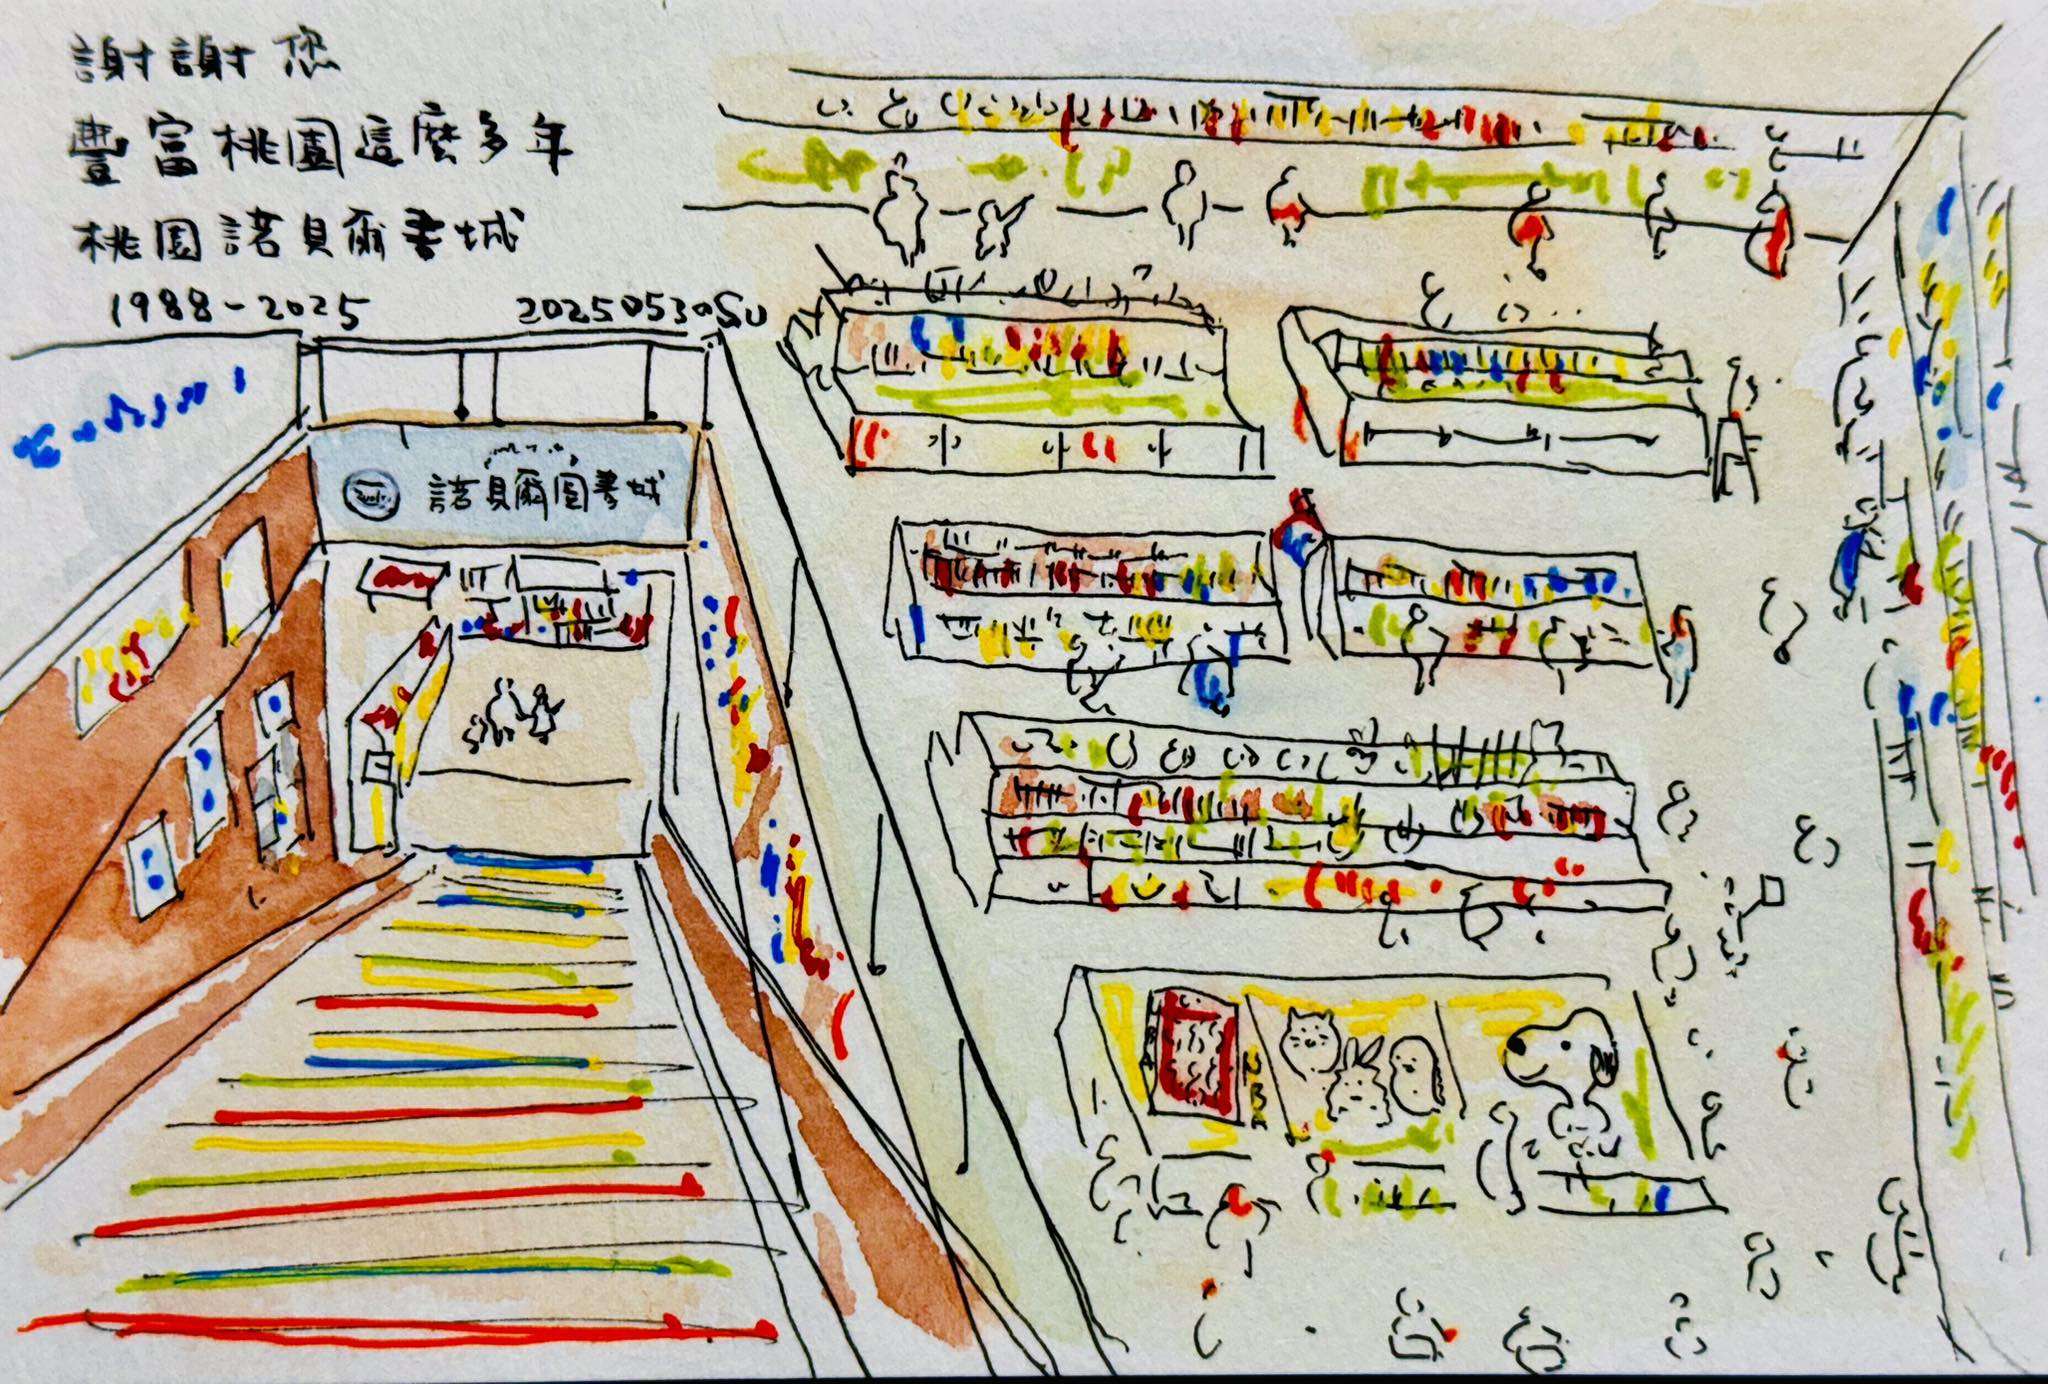 謝謝您
豐富桃園這麼多年
桃園諾貝爾書城
1988-2025
20250530Su
諾貝爾圖書城